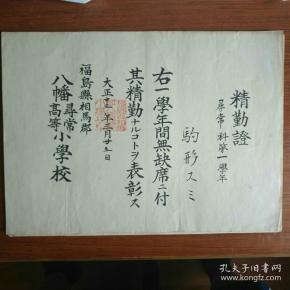 精勤證
尋常科第一學年
駒形スミ
右一學年間無缺席ニ付
其精勤ナルコトヲ表彰ス
大正十一年三月廿五日
福島縣相馬郡
八幡尋常高等小學校
孔夫子旧书网